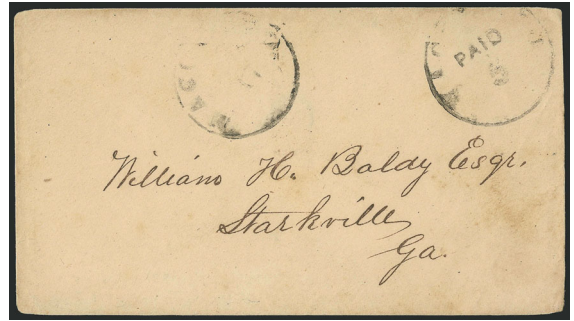 PAID
5
William H. Baldy Esqr.
Starkville
Ga.